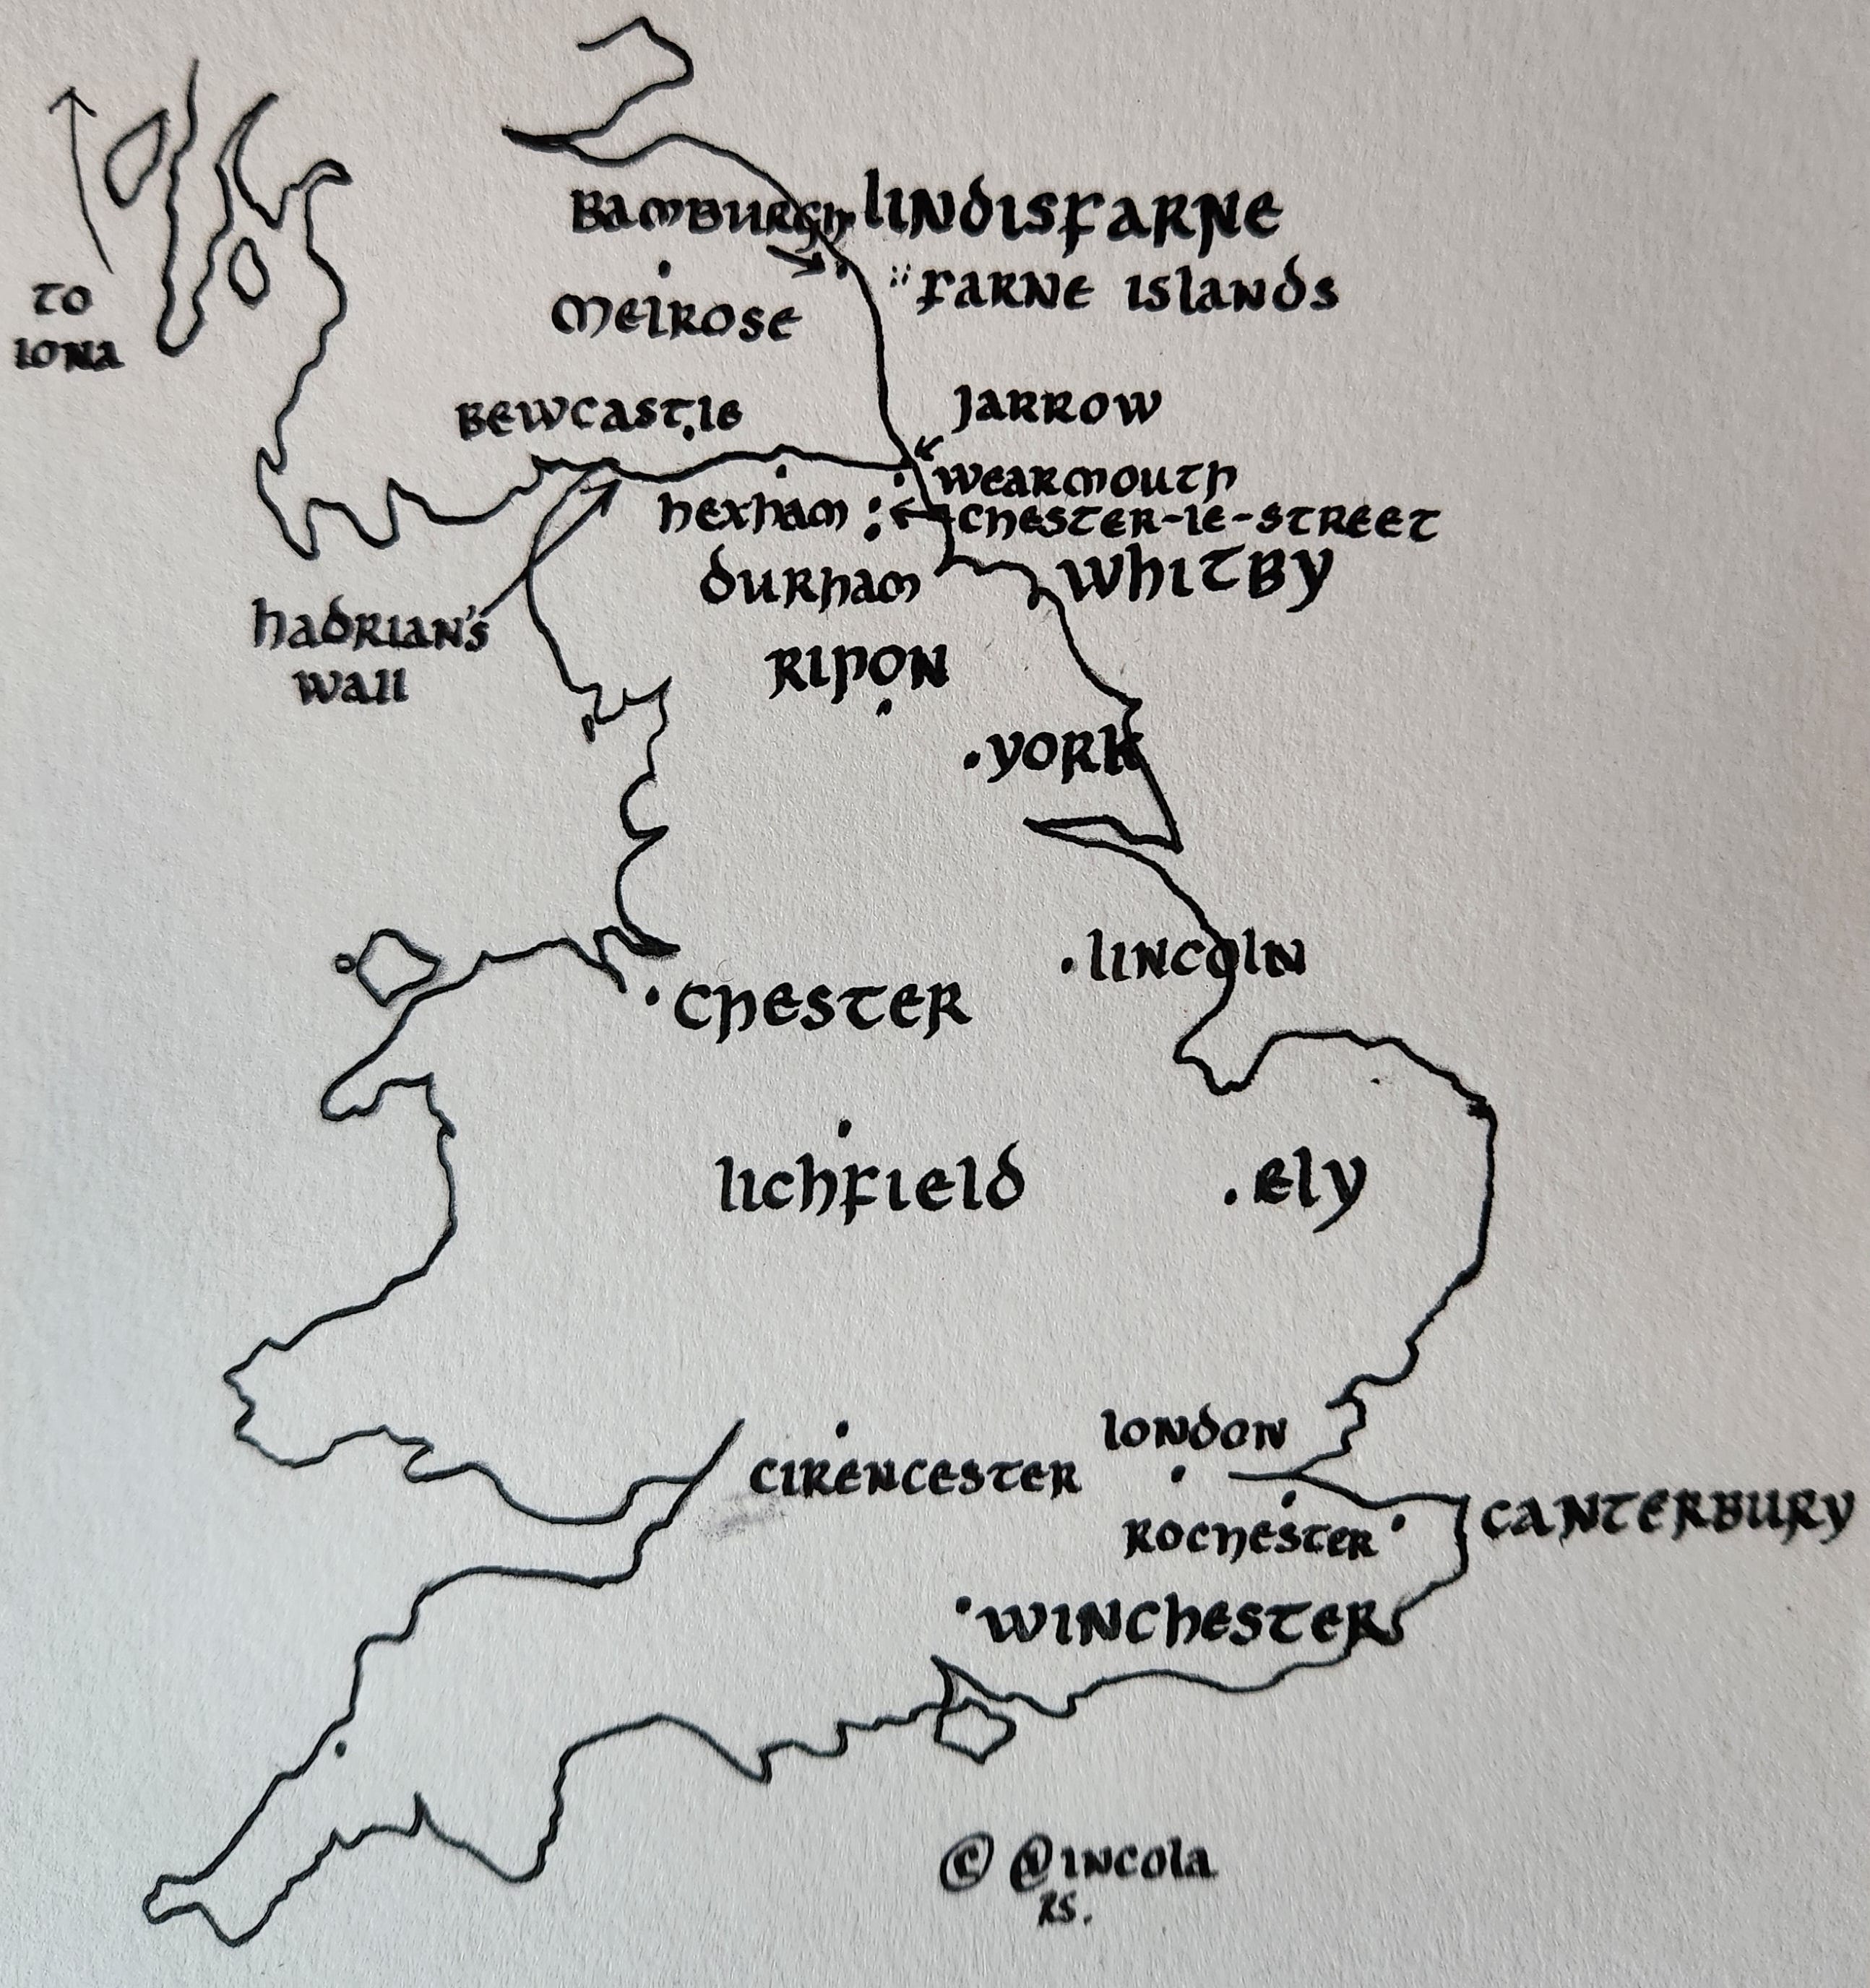 Bamburgh
Lindisfarne
Farne Islands
Melrose
To
Iona
Bewcastle
Jarrow
Wearmouth
Hexham
Chester-le-Street
Durham
Whitby
Hadrian's
Wall
Ripon
York
Lincoln
Chester
Lichfield
Ely
London
Cirencester
Canterbury
Rochester
Winchester
© @incola
RS.